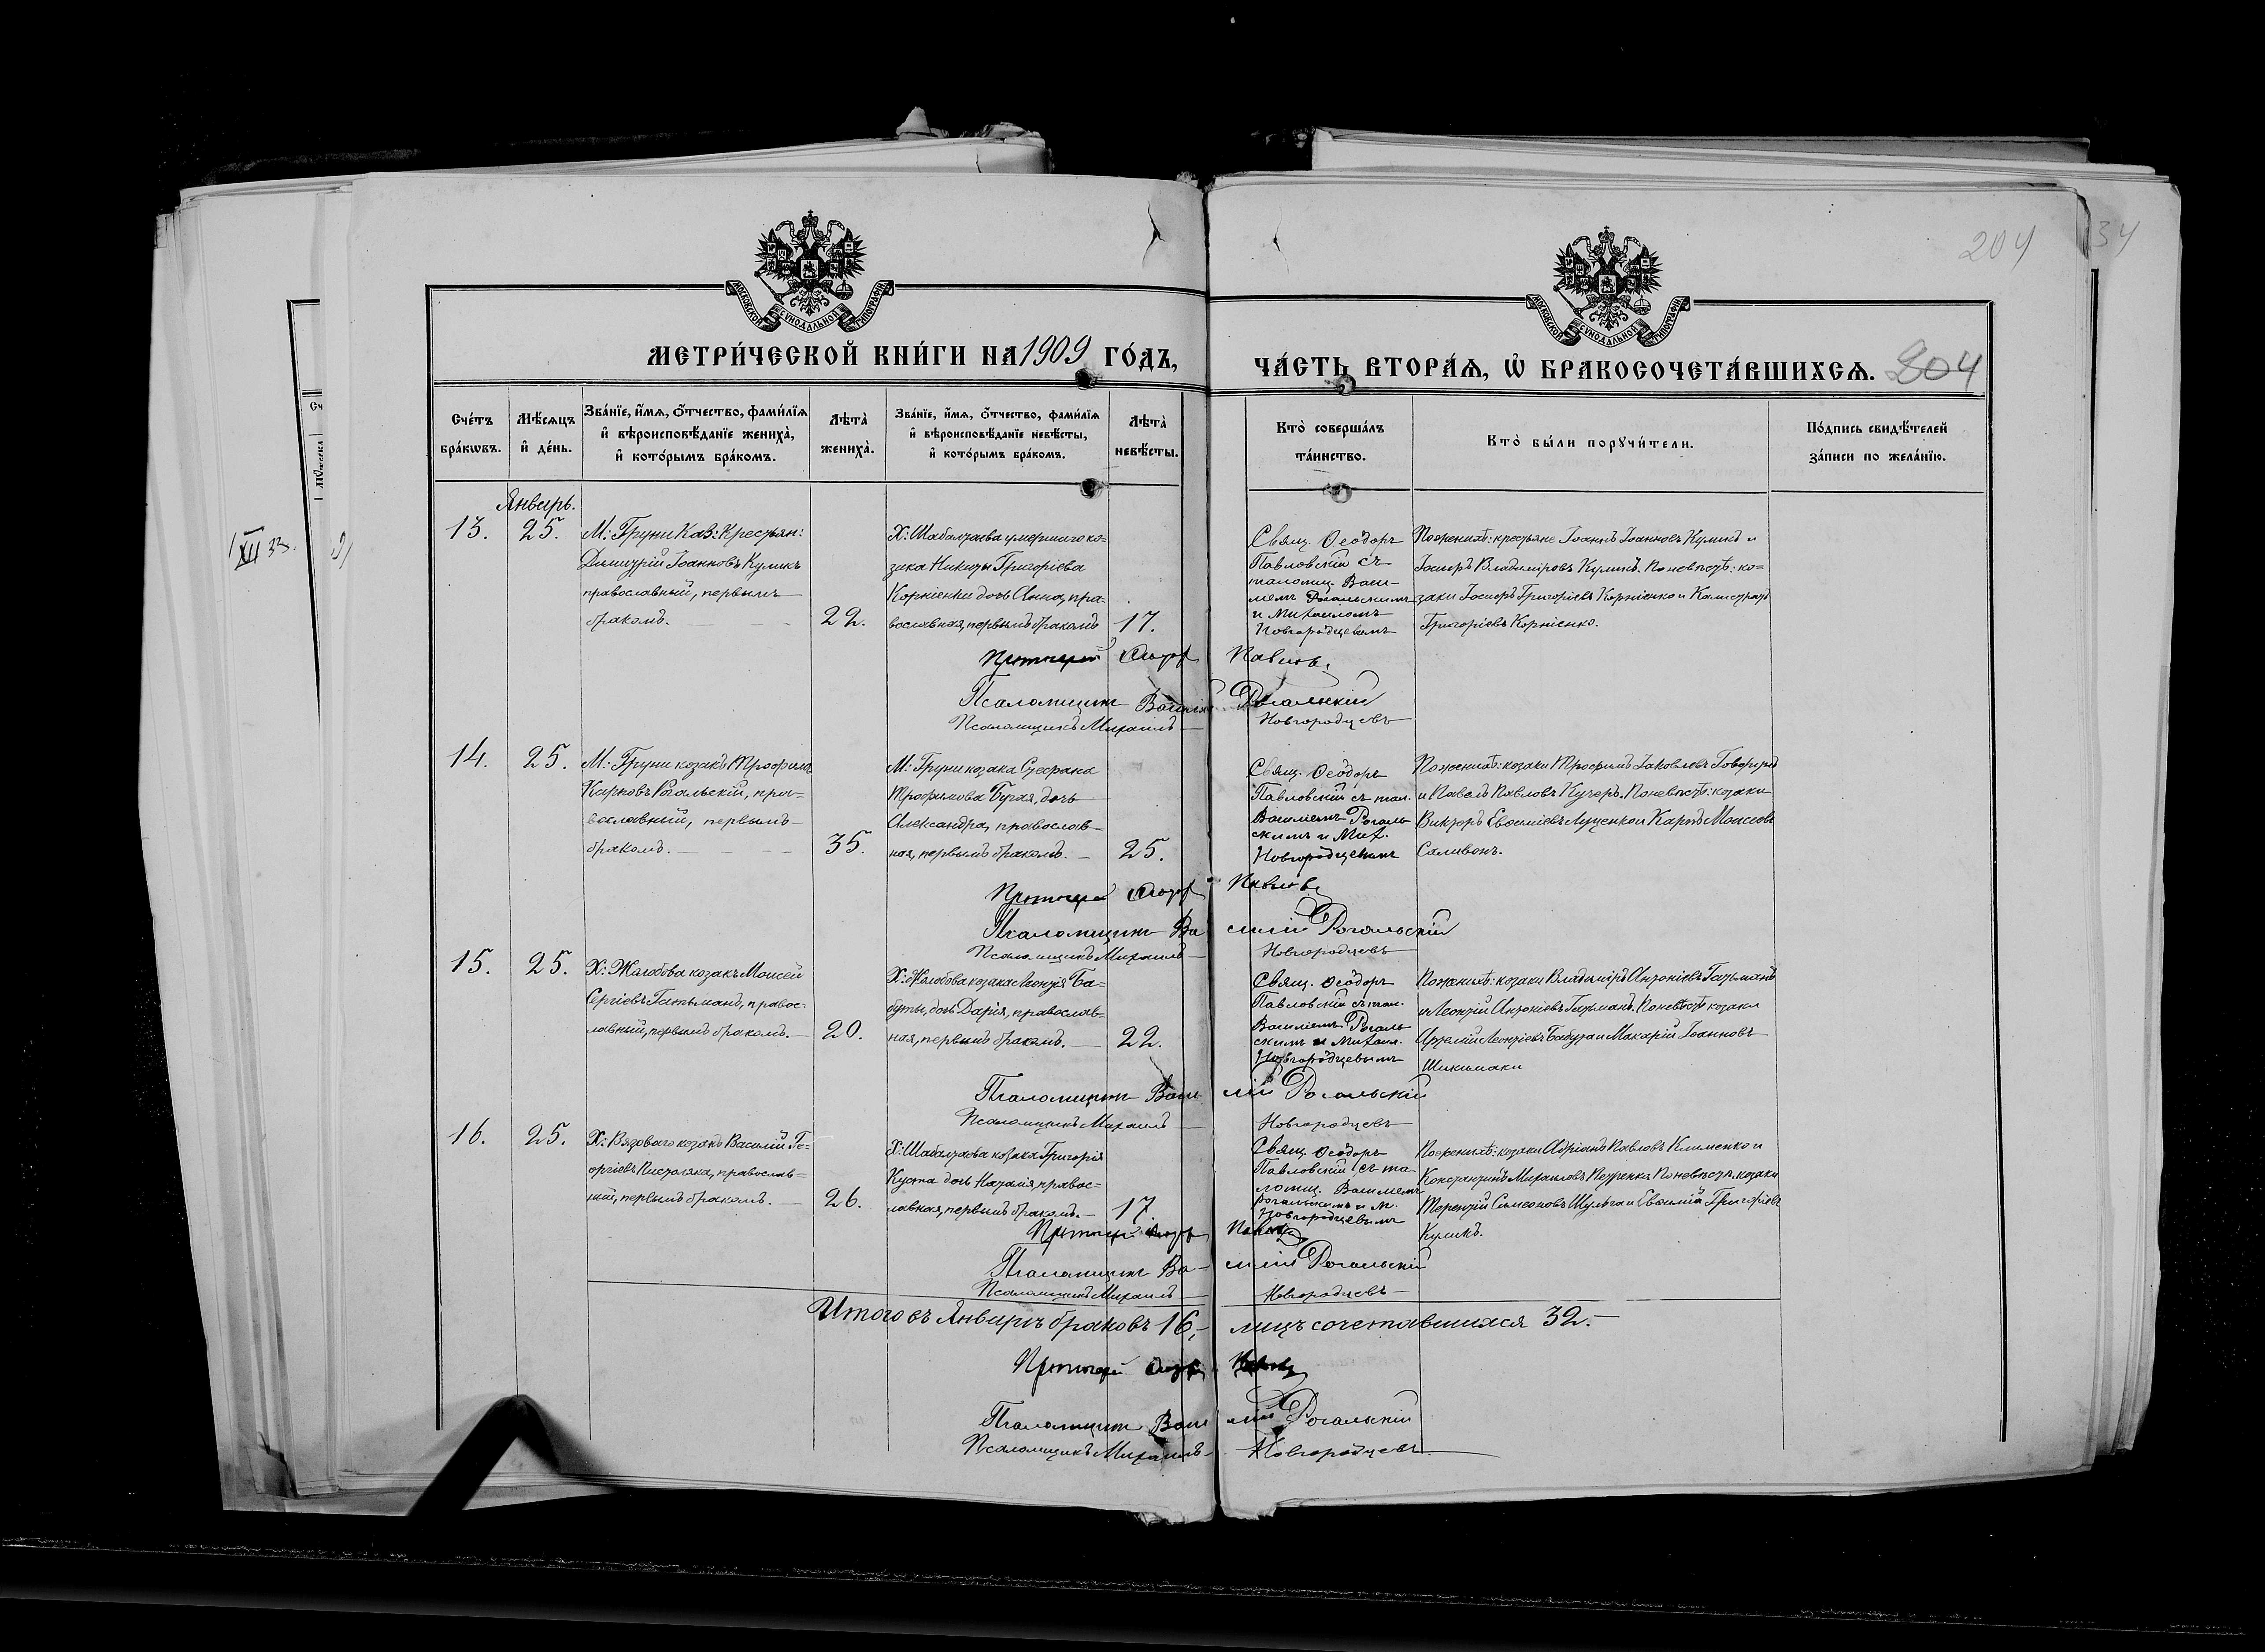 204
34
МОСКОВСКОЙ СѴНОДАЛЬНОЙ ТИПОГРАФІИ
МОСКОВСКОЙ СѴНОДАЛЬНОЙ ТИПОГРАФІИ
МЕТРИ́ЧЕСКОЙ КНИ́ГИ НА 1909 ГО́ДЪ,
ЧА́СТЬ ВТОРА́Ѧ, Ѡ҆ БРАКОСОЧЕТА́ВШИХСѦ. 804
Сче́тъ бра́кѡвъ.
Мѣ́сѧцъ и҆ де́нь.
Зва́нїе, и҆́мѧ, ѻ҆́тчество, фами́лїѧ и҆ вѣроисповѣ́данїе жениха̀, и҆ кото́рымъ бра́комъ.
Лѣта̀ жениха̀.
Зва́нїе, и҆́мѧ, ѻ҆́тчество, фами́лїѧ и҆ вѣроисповѣ́данїе невѣ́сты, и҆ кото́рымъ бра́комъ.
Лѣта̀ невѣ́сты.
Кто̀ соверша́лъ та́инство.
Кто̀ бы́ли порꙋчи́тели.
По́дпись свидѣ́телей за́писи по жела́нїю.
Январь.
13. 25.
М: Груни Каз: Крестьян:
Димитрій Іоанновъ Куликъ
православный, первымъ
бракомъ.
22.
Х: Шабалтаева умершаго ко-
зака Никиты Григоріева
Корніенки дочь Анна, пра-
вославная, первымъ бракомъ
17.
Свящ. Ѳеодоръ
Павловскій съ
псаломщ. Васи-
ліемъ Рогальскимъ
и Михаиломъ
Новгородцевымъ
По женихѣ: крестьяне Іоаннъ Іоанновъ Куликъ и
Іосифъ Владиміровъ Куликъ. По невѣстѣ: ко-
заки Іосифъ Григоріевъ Корніенко и Калистратъ
Григоріевъ Корніенко.
Протоіерей Ѳеодоръ Павловс
Псаломщикъ Василій Рогальскій
Псаломщикъ Михаилъ Новгородцевъ
14. 25.
М: Груни козакъ Трофимъ
Карповъ Рогальскій, пра-
вославный, первымъ
бракомъ.
35.
М: Груни козака Стефана
Трофимова Бугая, дочь
Александра, православ-
ная, первымъ бракомъ.
25.
Свящ. Ѳеодоръ
Павловскій съ псал.
Василіемъ Рогаль
скимъ и Мих.
Новгородцевымъ
По женихѣ: козаки Трофимъ Іаковлевъ
и Павелъ Павловъ Кучеръ. По невѣстѣ: козаки
Викторъ Евѳиміевъ Луценко и Карпъ Моисеевъ
Саливонъ.
Протоіерей Ѳеодоръ Павловс
Псаломщикъ Василій Рогальскій
Псаломщикъ Михаилъ Новгородцевъ
15. 25.
Х: Жолобова козакъ Моисей
Сергіевъ Гатьманъ, правос-
лавный, первымъ бракомъ.
20.
Х: Жолобова козака Леонтія Ба-
буты, дочь Дарія, православ-
ная, первымъ бракомъ.
22.
Свящ. Ѳеодоръ
Павловскій съ псал.
Василіемъ Рогаль
скимъ и Михаил.
Новгородцевымъ
По женихѣ: козаки Владиміръ Антоніевъ Гатьманъ
и Леонтій Антоніевъ Гатьманъ. По невѣстѣ козаки
Артемій Леонтіевъ Бабута и Макарій Іоанновъ
Псаломщикъ Василій Рогальскій
Псаломщикъ Михаилъ Новгородцевъ
16. 25.
Х: Вязоваго козакъ Василій Ге-
оргіевъ Пистоляка, православ-
ный, первымъ бракомъ.
26.
Х: Шабалтаева козака Григорія
Куста дочь Наталія, правос-
лавная, первымъ бракомъ.
17.
Свящ. Ѳеодоръ
Павловскій съ пса
ломщ. Василіемъ
Рогальскимъ и М.
Новгородцевымъ
По женихѣ: козаки Адріанъ Павловъ Клименко и
Константинъ Михаиловъ По невѣстѣ козаки
Терентій Симеоновъ Шульга и Евѳимій Григоріевъ
Куликъ.
Протоіерей Ѳеодоръ Павловс
Псаломщикъ Василій Рогальскій
Псаломщикъ Михаилъ Новгородцевъ
Итого въ Январѣ браковъ 16,- лицъ сочетавшихся 32.-
Протоіерей Ѳеодоръ Павловс
Псаломщикъ Василій Рогальскій
Псаломщикъ Михаилъ Новгородцевъ